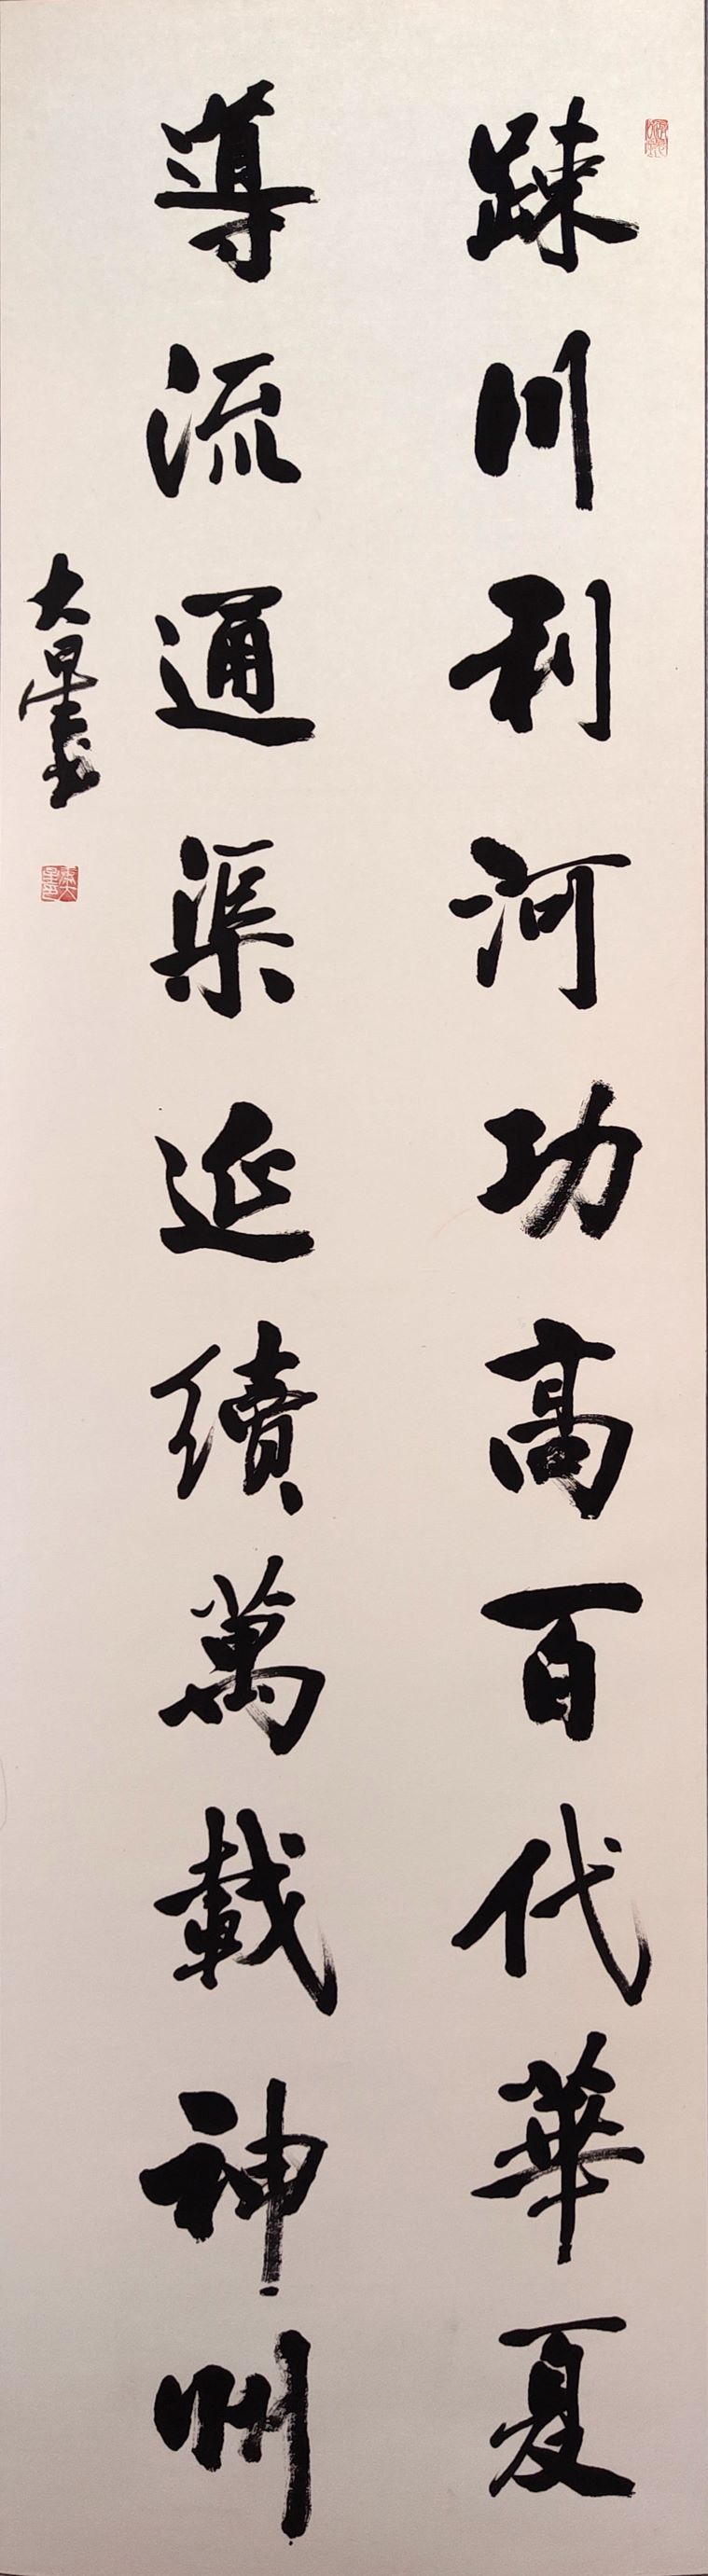 踈川利河功高百代華夏
導流通渠延續萬載神州
大星書